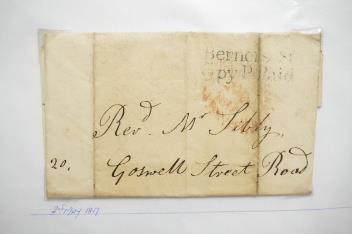 Berners St
2py P.Paid
Revd. Mr Sibly,
20, Goswell Street Road
2nd May 1817